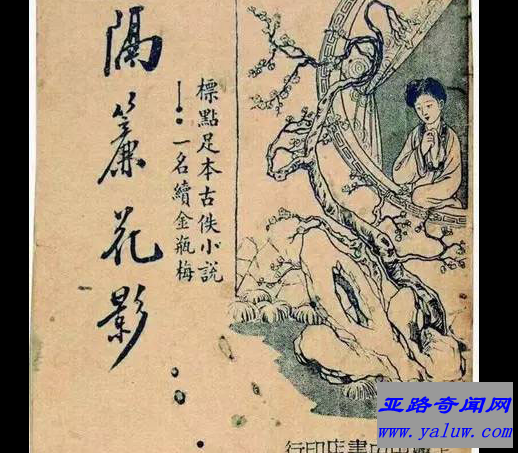 隔簾花影
標點足本古佚小說
一名續金瓶梅
書店印行
亚路奇闻网
www.yaluw.com